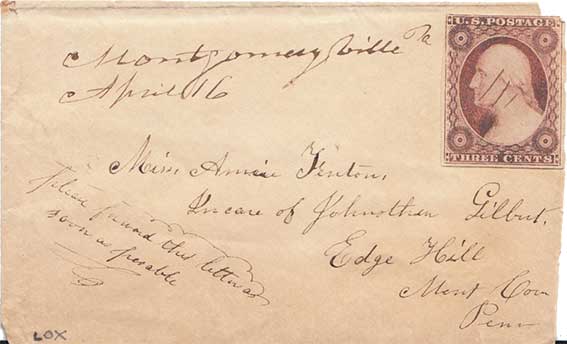 Montgomeryville Pa
April 16
U.S. POSTAGE
THREE CENTS
Miss. Annie Fenton,
Incare of Johnothan Gilbert.
Edge Hill
Mont Com
Penn
please forward this letter as
soon as posable
LOX